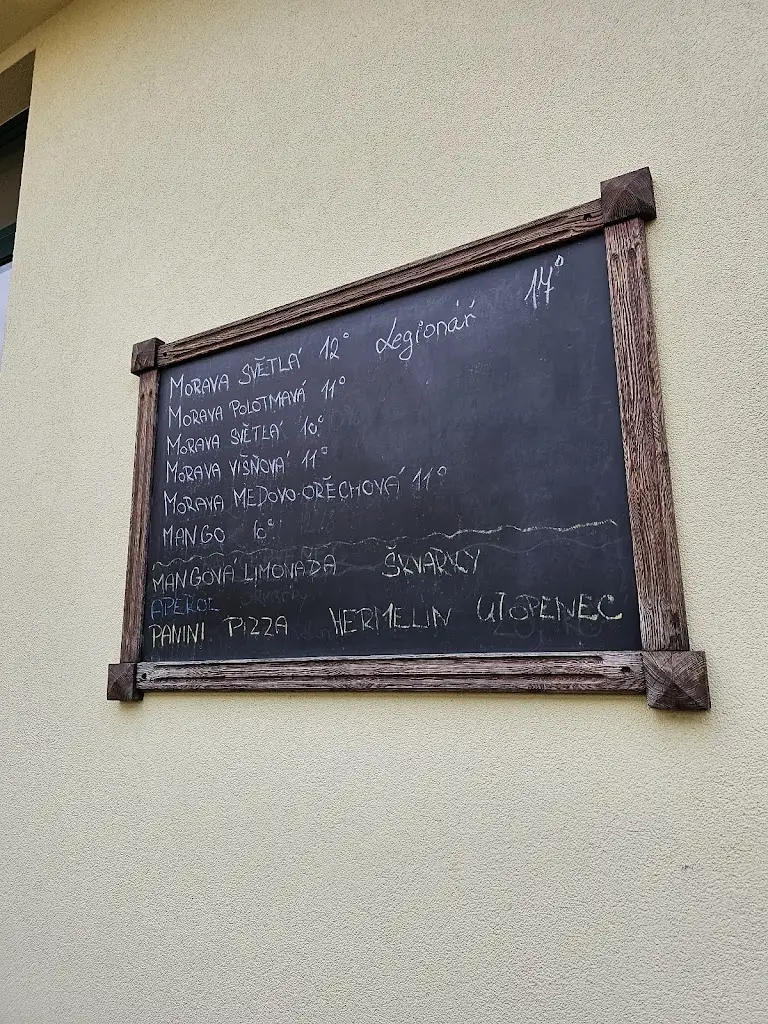 MORAVA SVĚTLÁ 12° Legionář 17°
MORAVA POLOTMAVÁ 11°
MORAVA SVĚTLÁ 10°
MORAVA VIŠŇOVÁ 11°
MORAVA MEDOVO-OŘECHOVÁ 11°
MANGO 10°
MANGOVÁ LIMONAĎA ŠKVARKY
APEROL
PANINI PIZZA HERMELIN UTOPENEC